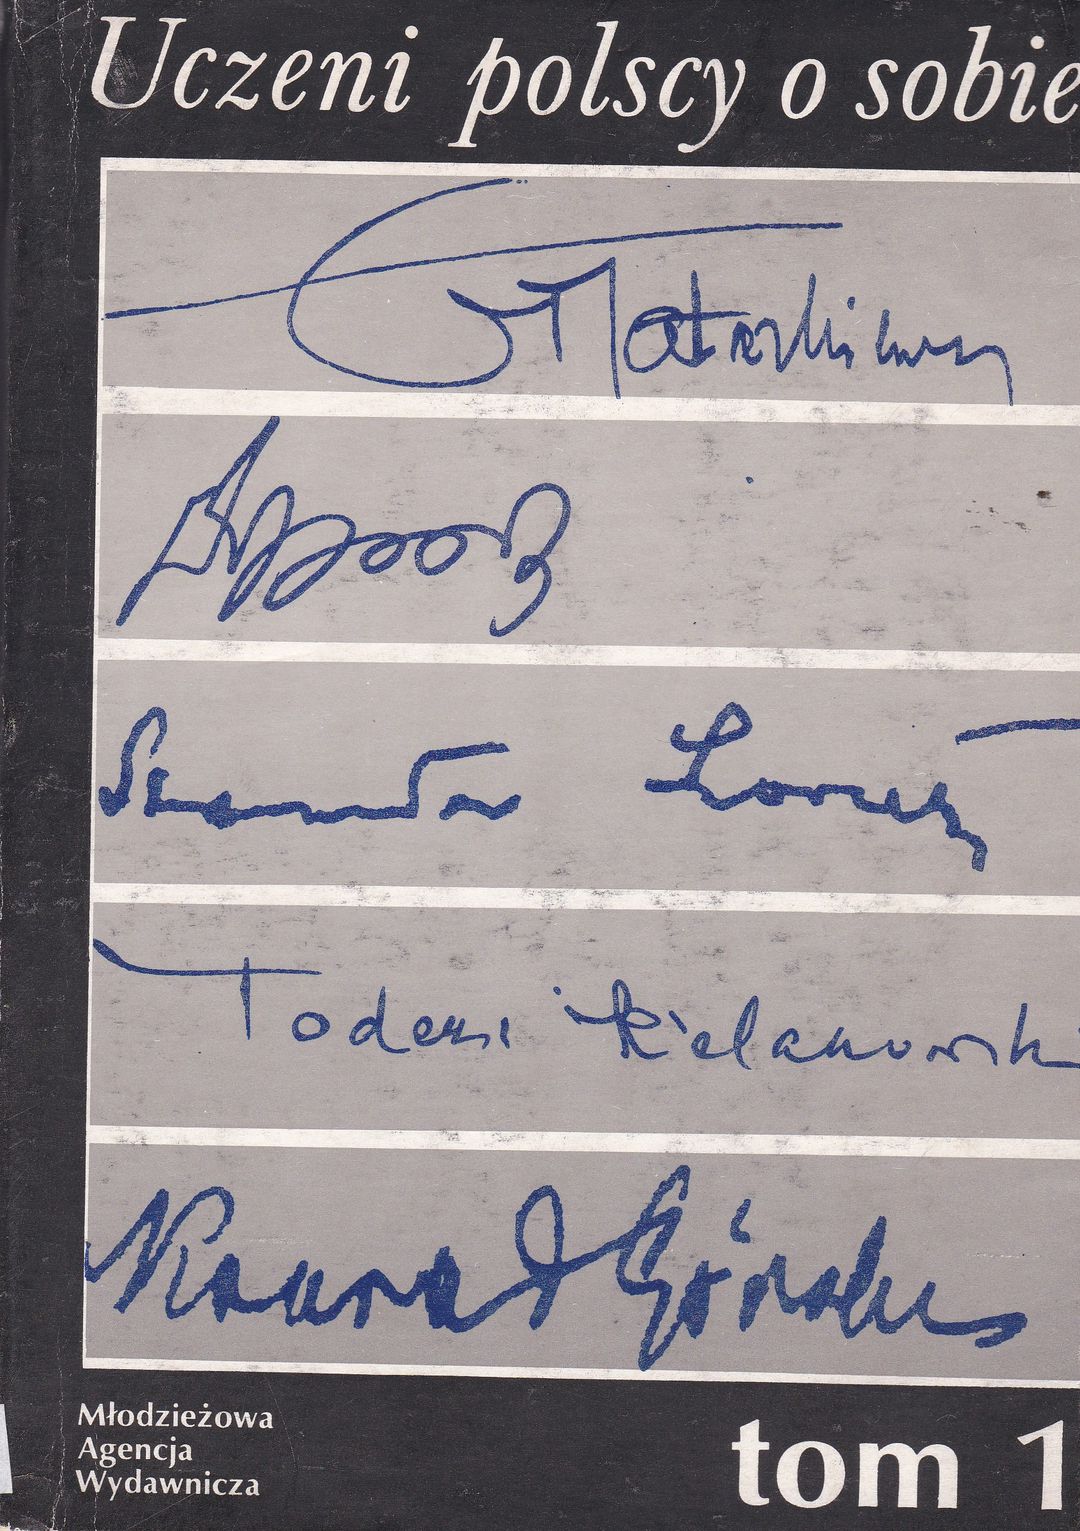 Uczeni polscy o sobie
Tatarkiewicz
Stanisław Lorentz
Tadeusz Kielanowski
Konrad Górski
Młodzieżowa
Agencja
Wydawnicza
tom 1